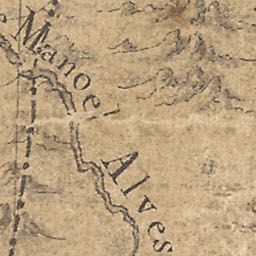 Manoel Alves